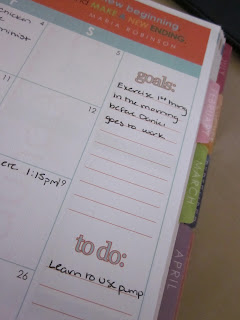 new beginning
MAKE A NEW ENDING.
MARIA ROBINSON
S
4
5
goals:
Exercise 1st thing
in the morning
before Daniel
goes to work
11
12
ere 1:15pm?
to do:
Learn to use pump
26
MARCH
APRIL